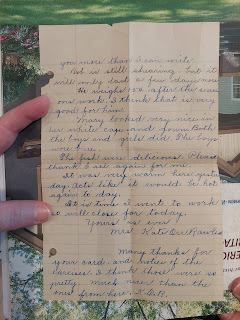 you more than I can write.
Bob is still shearing, but it
will only last a few days more
He weighs     after the season
ons work. I think that is very
good for him.
Mary looked very nice in
her white cap and gown. Both
the boys and girls did. The boys
wore blue.
The fish were delicious. Please
thank Earl again for me.
It was very warm here yester
day. Acts like it would be hot
again to day.
It is time I went to work
so will close for today.
Yours as ever
Mrs. Kate Orr Rawles
Many thanks for
your card, and notice of the
I think those were so
pretty. Much     than the
ones from here. K.O.R.